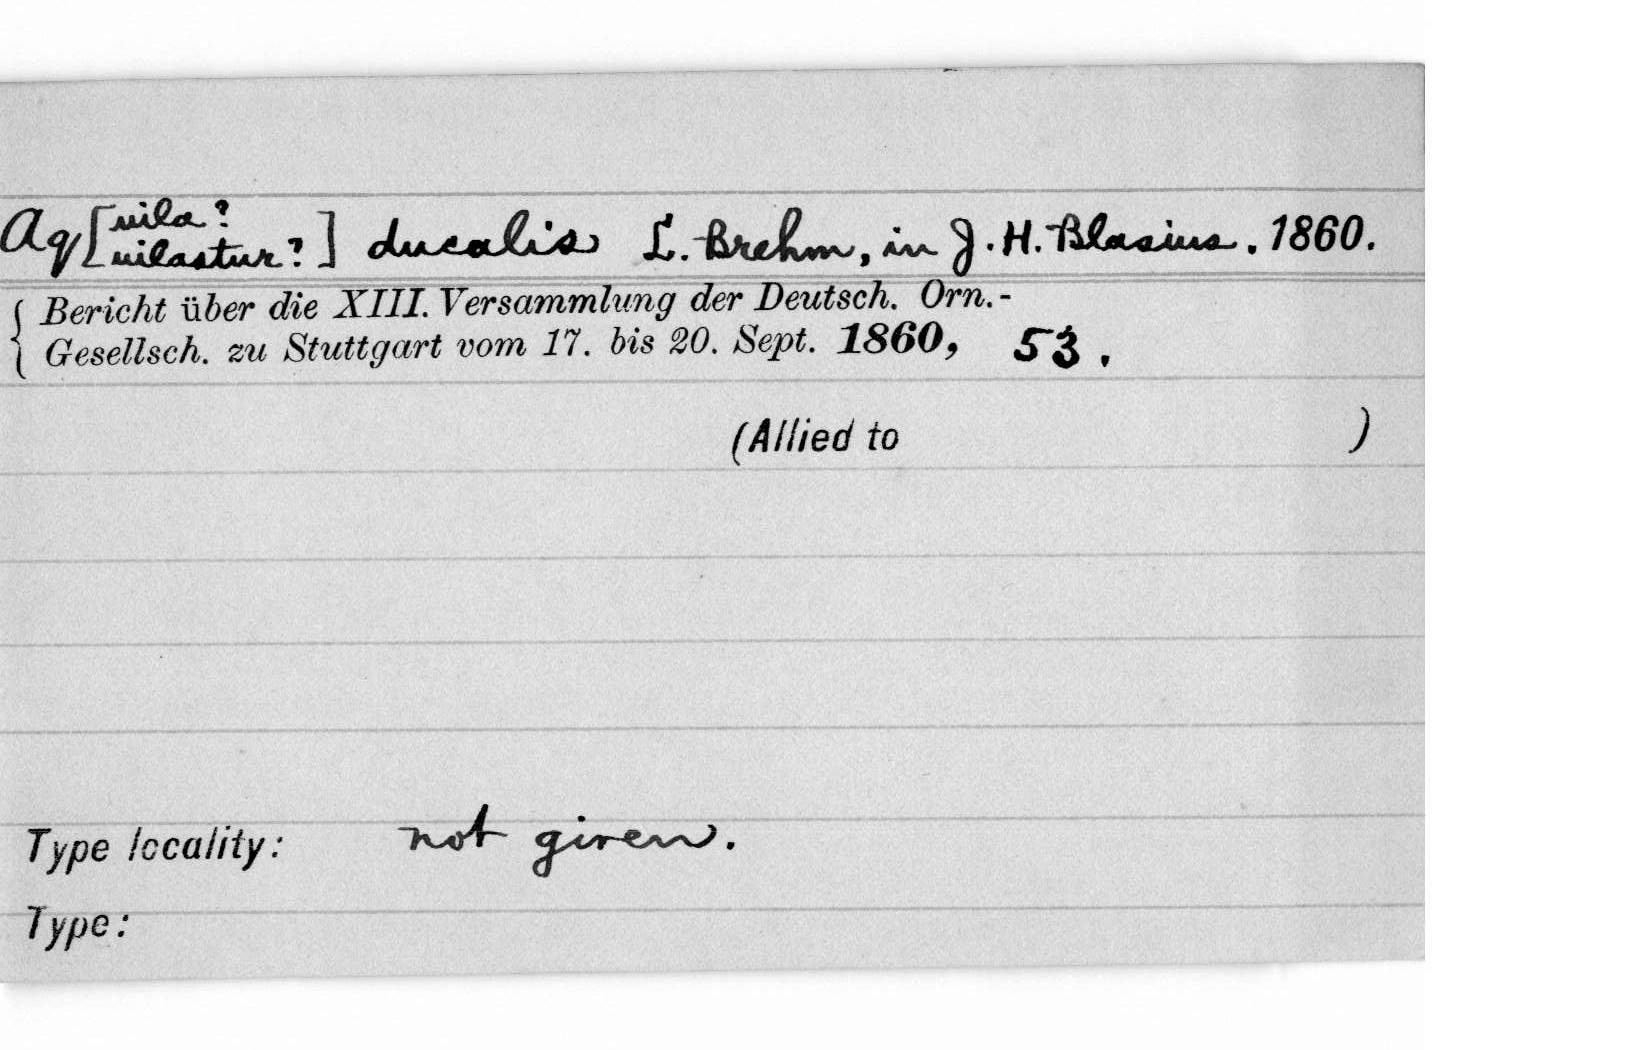 Aq[uila?
uilastur?] ducalis L. Brehm, in J. H. Blasius. 1860.
{ Bericht über die XIII. Versammlung der Deutsch. Orn.-
Gesellsch. zu Stuttgart vom 17. bis 20. Sept. 1860, 53.
(Allied to )
Type locality: not given.
Type: